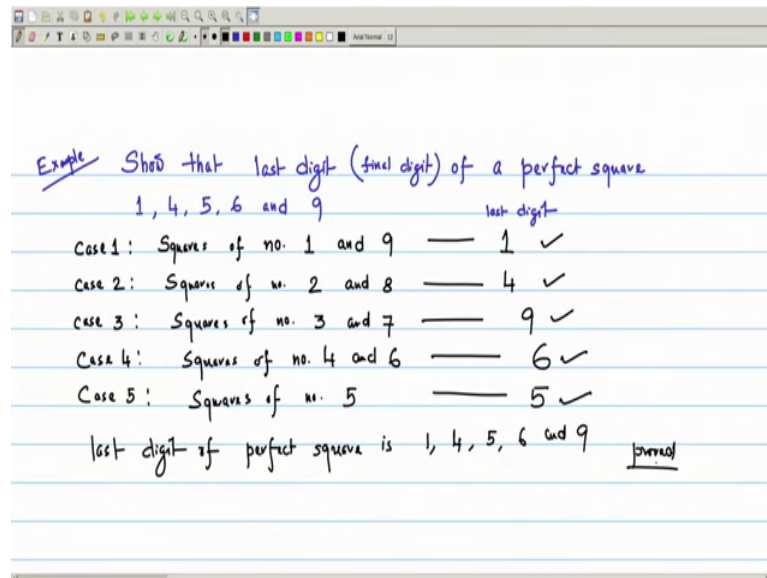 Arial Normal 12
Example Show that last digit (final digit) of a perfect square
1, 4, 5, 6 and 9
last digit
Case 1: Squares of no. 1 and 9 — 1 ✓
Case 2: Squares of no. 2 and 8 — 4 ✓
Case 3: Squares of no. 3 and 7 — 9 ✓
Case 4: Squares of no. 4 and 6 — 6 ✓
Case 5: Squares of no. 5 — 5 ✓
last digit of perfect square is 1, 4, 5, 6 and 9 proved